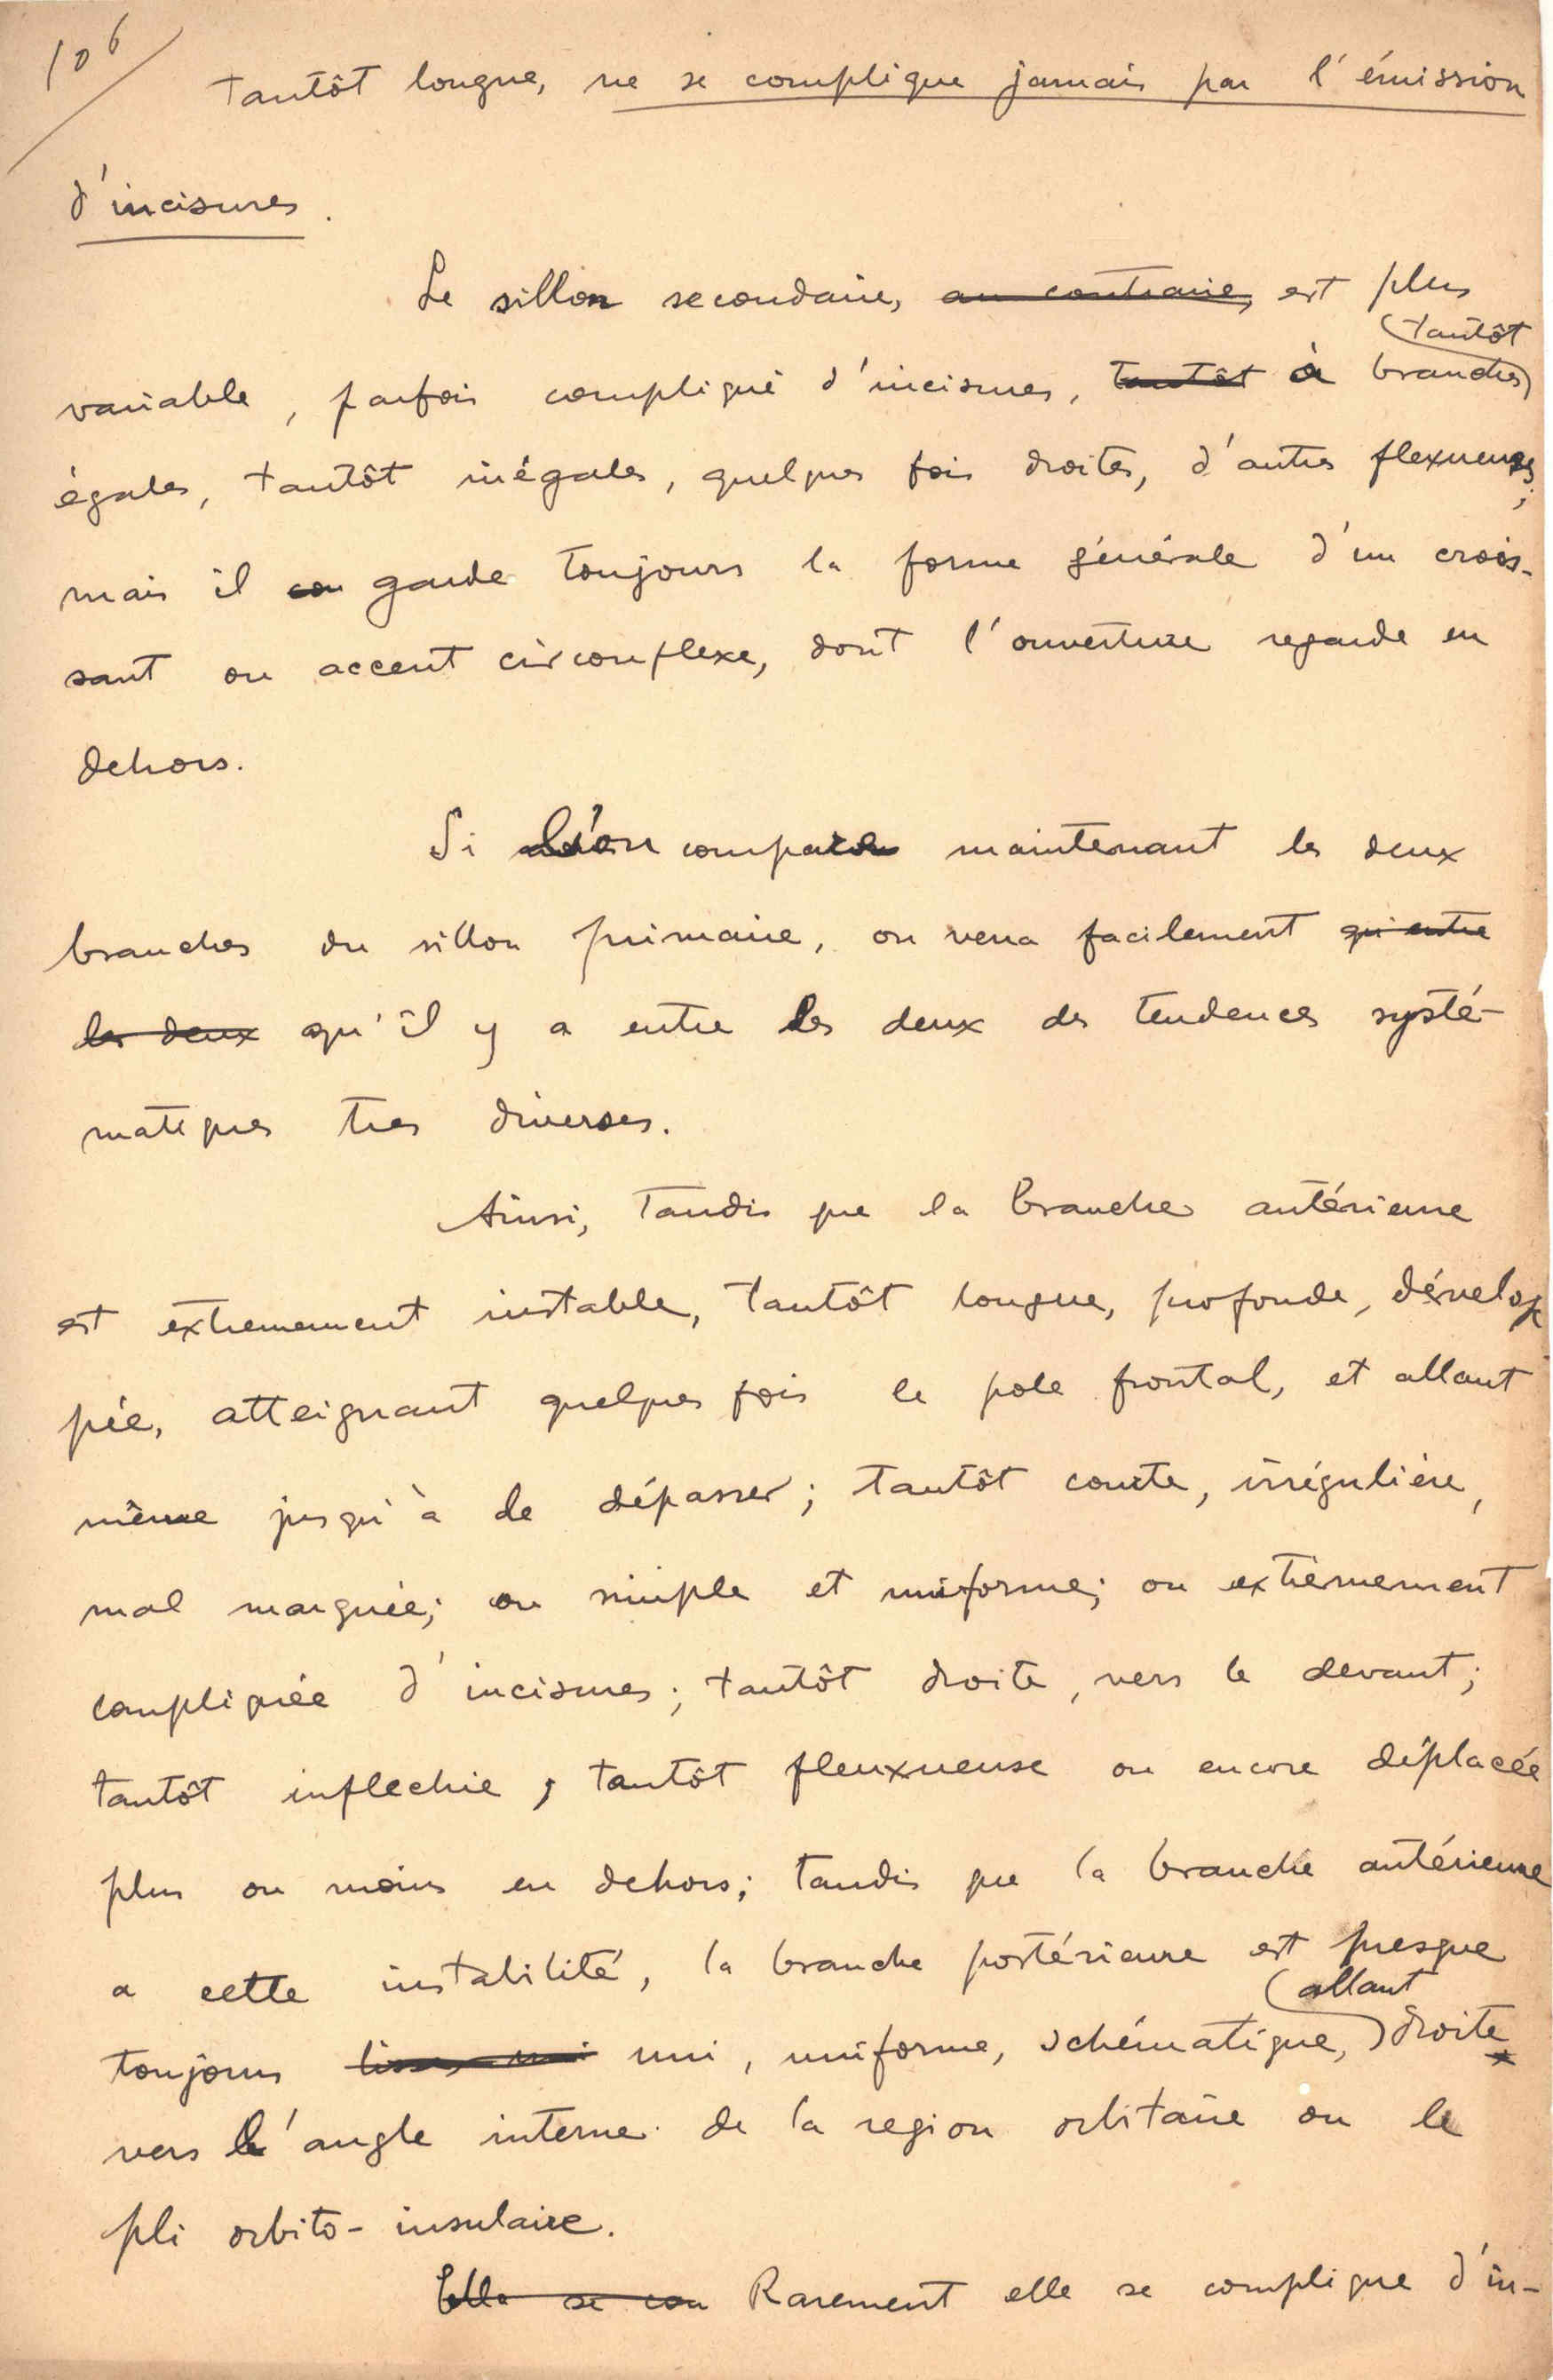 106
tantôt longue, ne se complique jamais par l'émission
d'incisures.
Le sillon secondaire, au contraire, est plus
tantôt
variable, parfois compliqué d'incisures, tantôt à branches
égales, tantôt inégales, quelques fois droites, d'autres flexueuses;
mais il con garde toujours la forme générale d'un crois-
sant ou accent circonflexe, dont l'ouverture regarde en
dehors.
Si l'on compare maintenant les deux
branches du sillon primaire, on verra facilement qui entre
les deux qu'il y a entre les deux des tendences systé-
matiques tres diverses.
Ainsi, tandis que la branche antérieure
est extremement instable, tantôt longue, profonde, dévelop
pée, atteignant quelques fois le pole frontal, et allant
même jusqu'à le dépasser; tantôt courte, irrégulière,
mal marquée; ou simple et uniforme; ou extrèmement
compliquée d'incisures; tantôt droite, vers le devant;
tantôt inflechie, tantôt fleuxueuse ou encore déplacée
plus ou moins en dehors; tandis que la branche antérieure
a cette instabilité, la branche postérieure est presque
allant
toujours lisse, uni uni, uniforme, schématique, droite
vers l'angle interne de la region orbitaire ou le
pli orbito-insulaire.
Elle se con Rarement elle se complique d'in-